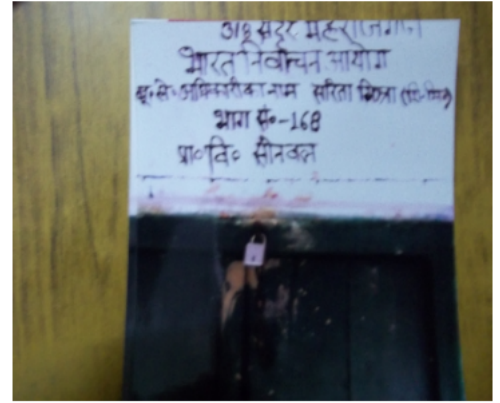 318 सदर महराजगंज
भारत निर्वाचन आयोग
बू॰ले॰अधिकारी का नाम सरिता
भाग सं॰-168
प्रा॰वि॰